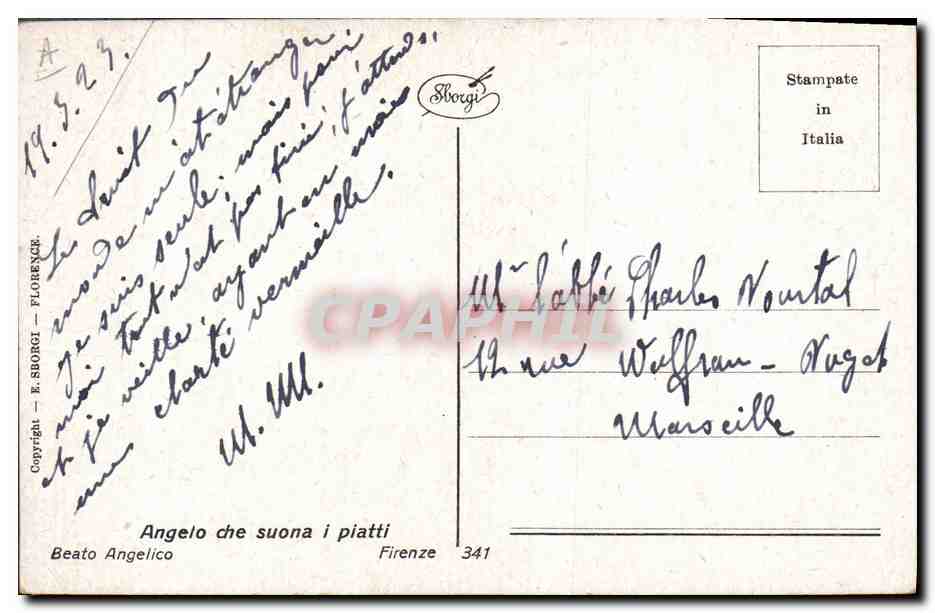 A
19.3.23.
Le bruit du
monde m'est étranger
je suis seule; mais pour
moi tout n'est pas fini, j'attends,
et je veille, ayant en main
une clarté vermeille.
M. M.
Copyright — E. SBORGI — FLORENCE.
Sborgi
Stampate
in
Italia
Mr l'abbé Charles Nourtal
12 rue Wulfran - Puget
Marseille
CPAPHIL
Angelo che suona i piatti
Beato Angelico Firenze 341